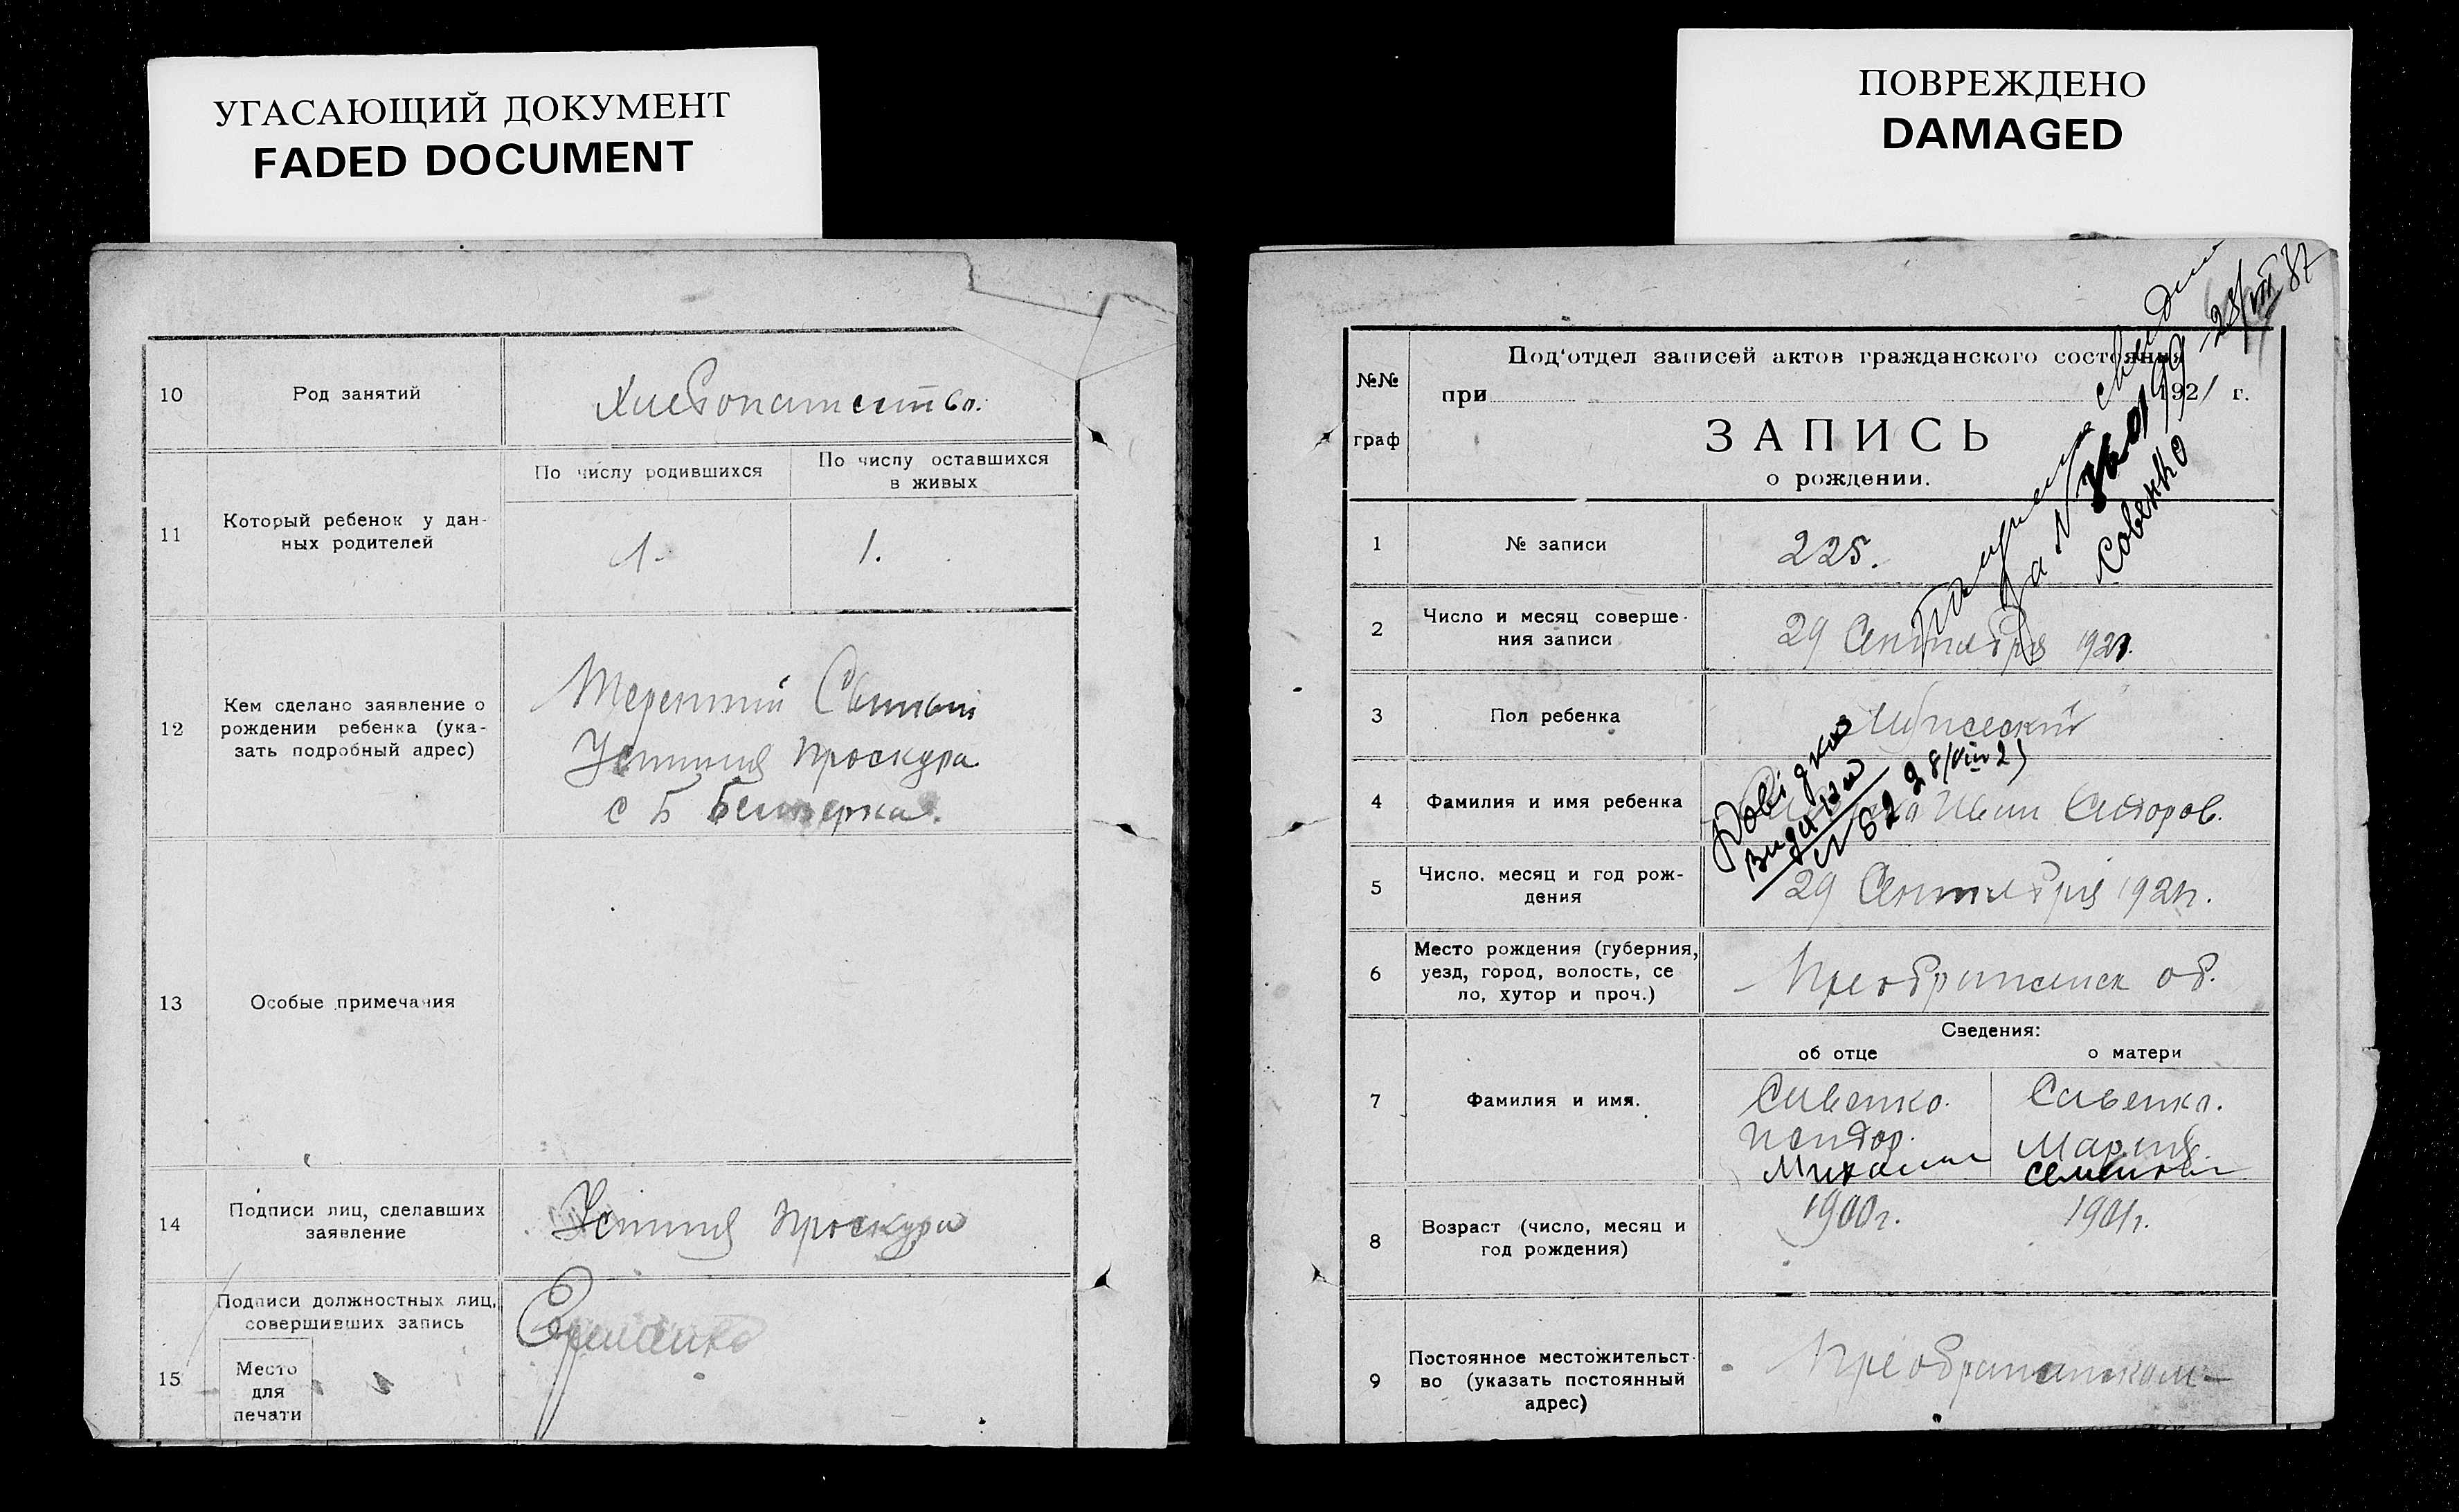 УГАСАЮЩИЙ ДОКУМЕНТ
FADED DOCUMENT
10
Род занятий
Хлебопашество.
11
Который ребенок у дан-
ных родителей
По числу родившихся
1.
По числу оставшихся
в живых
1.
12
Кем сделано заявление о
рождении ребенка (ука-
зать подробный адрес)
Терентий
Устиния Проскура
с Б
13
Особые примечания
14
Подписи лиц, сделавших
заявление
Устиния Проскура
15
Подписи должностных лиц,
совершивших запись
Место
для
печати
ПОВРЕЖДЕНО
DAMAGED
№№
граф
Под'отдел записей актов гражданского состояния
при 1921 г.
ЗАПИСЬ
о рождении.
Совенко
28/VIII 37
1
№ записи
225.
2
Число и месяц соверше-
ния записи
29 Сентября 1921.
3
Пол ребенка
Мужеский
Довідка
видана
N 82 28/VIII 25
4
Фамилия и имя ребенка
Иван Сидоров.
5
Число, месяц и год рож-
дения
29 Сентября 1921г.
6
Место рождения (губерния,
уезд, город, волость, се
ло, хутор и проч.)
Преображенск об.
Сведения:
об отце
о матери
7
Фамилия и имя.
Савенко.
Исидор.
Савенко.
Мария.
8
Возраст (число, месяц и
год рождения)
1900г.
1901г.
9
Постоянное местожительст-
во (указать постоянный
адрес)